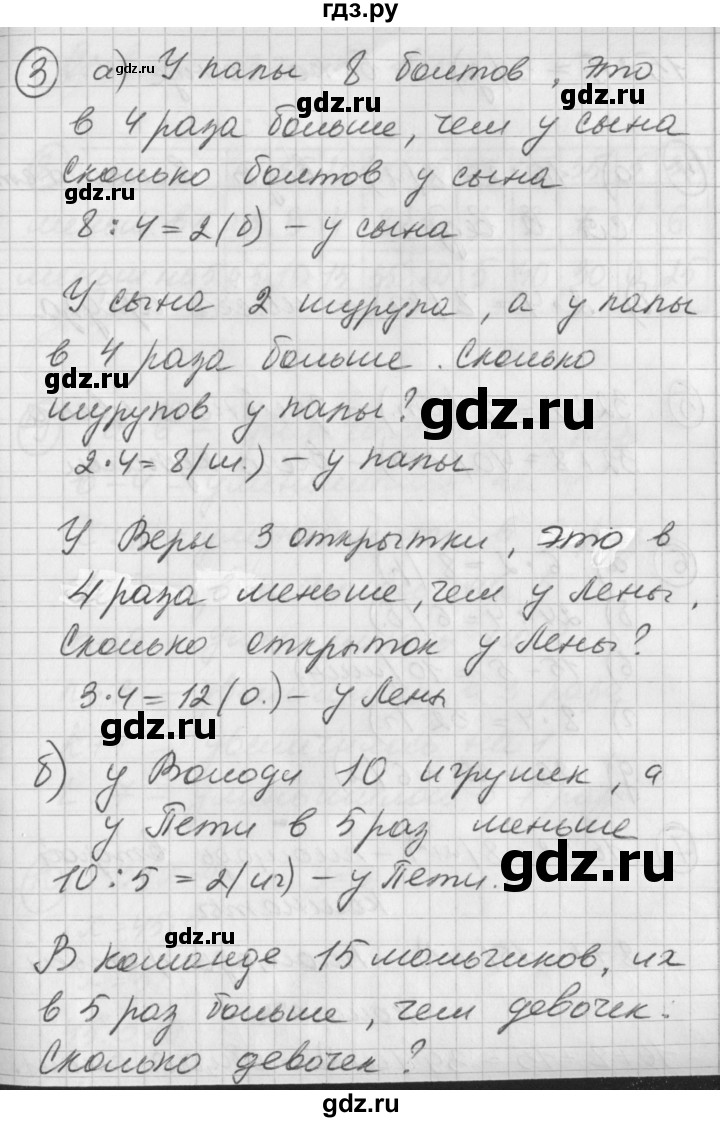 гдз.ру
3 а) У папы 8 болтов, это
gdz.ru
gdz.ru
в 4 раза больше, чем у сына
Сколько болтов у сына
gdz.ru
8 : 4 = 2 (б) – у сына
У сына 2 шурупа, а у папы
в 4 раза больше. Сколько
gdz.ru
шурупов у папы?
gdz.ru
2 · 4 = 8 (ш.) – у папы
У Веры 3 открытки, это в
4 раза меньше, чем у Лены.
Сколько открыток у Лены?
3 · 4 = 12 (о.) – у Лены
gdz.ru
б) у Володи 10 игрушек, а
у Пети в 5 раз меньше
10 : 5 = 2 (иг) – у Пети.
gdz.ru
gdz.ru
В команде 15 мальчиков, их
в 5 раз больше, чем девочек.
Сколько девочек?
gdz.ru